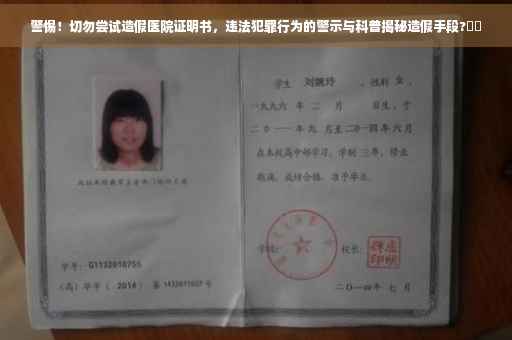 警惕！切勿尝试造假医院证明书，违法犯罪行为的警示与科普揭秘造假手段?
学生 刘婉玲 ，性别 女 ，
一九九六 年 二 月 日生，于
二〇一一年九 月至二〇一四年 六 月
在本校高中部学习，学制 三年，修业
期满，成绩合格，准予毕业。
学号： G1132010755
学校： 校长：
(高）毕字（ 2014 ）第 1432011007 号
二〇一四年 七 月